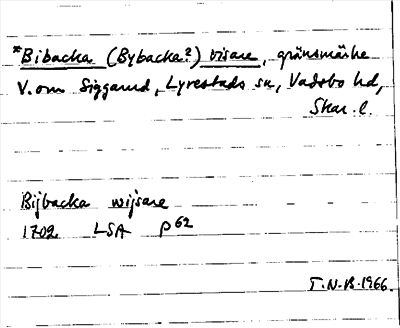 *Bibacka (Bybacka?) visare, gränsmärke
V. om Siggarud, Lyrestads sn, Vadsbo hd,
Skar. l.
Bijbacka wijsare
1702 LSA P 62
T.N.B. 1966.